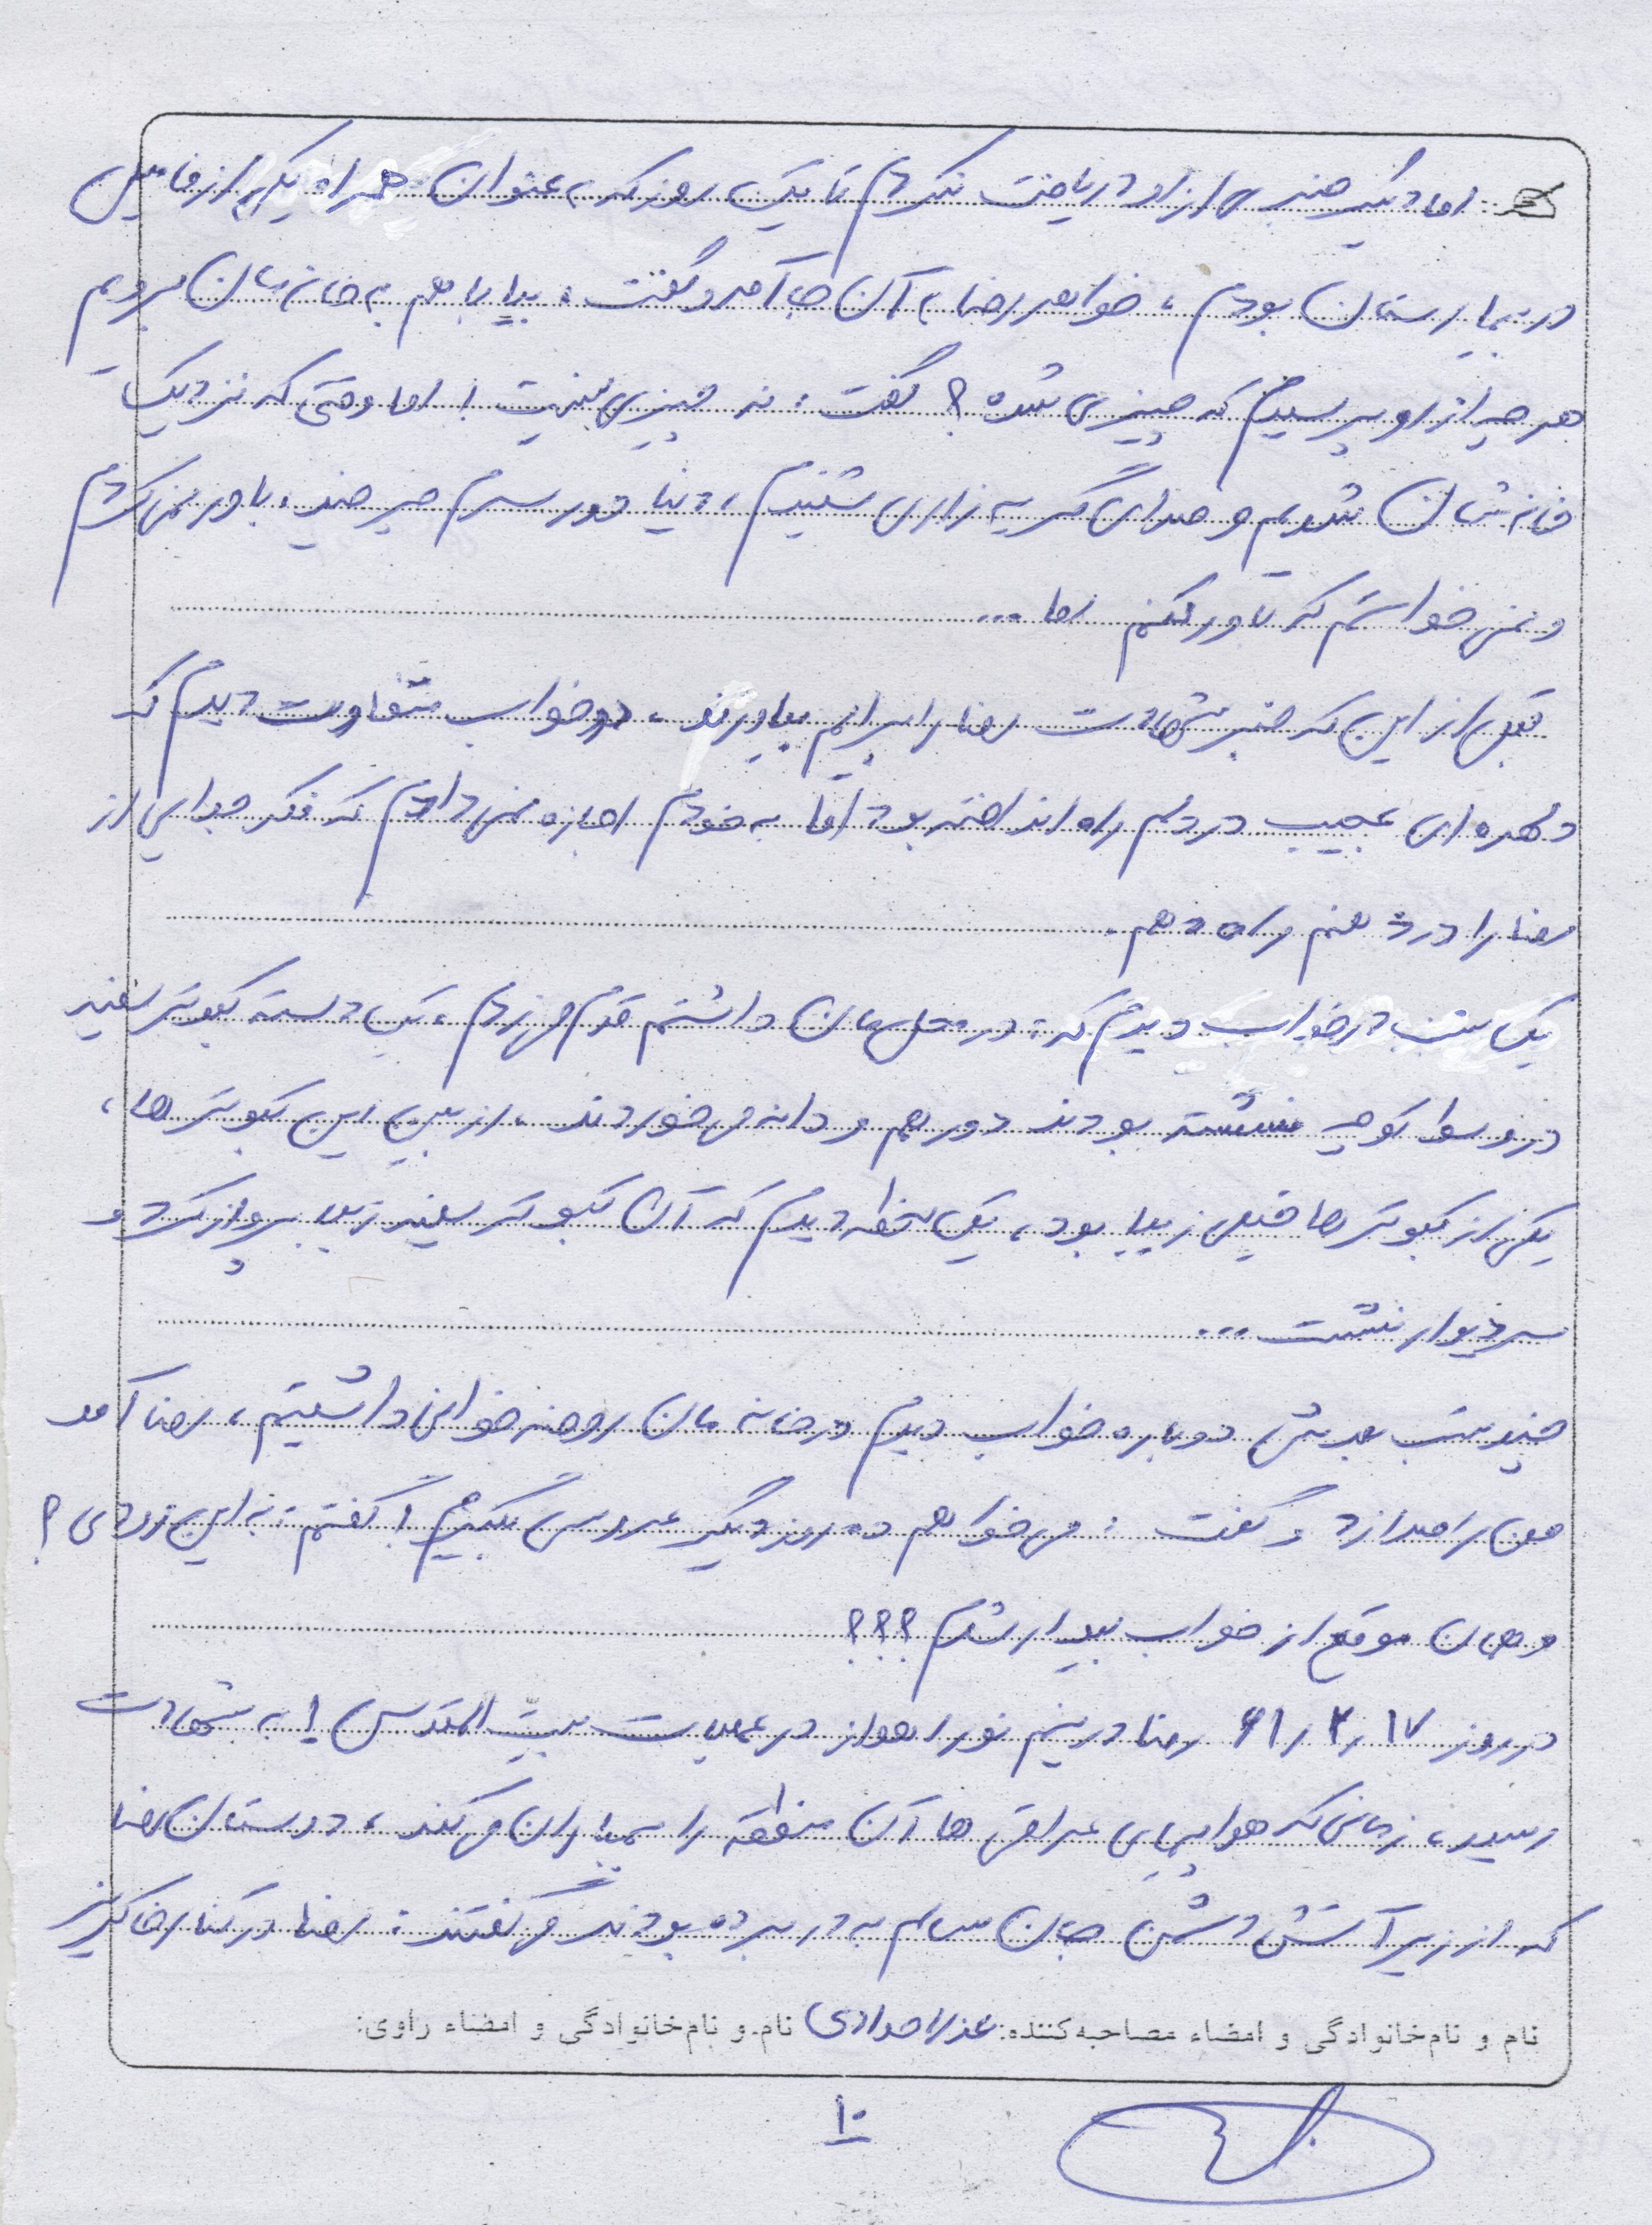 اما دیگر خبری از او دریافت نکردم تا یک روز که به عنوان همراه یکی از فامیل
در بیمارستان بودم، خواهر رضا به آن جا آمد و گفت: بیا با هم به خانه مان برویم
هر چه از او پرسیدم که چیزی شده؟ گفت: نه چیزی نیست! اما وقتی که نزدیک
خانه شان شدیم و صدای گریه زاری شنیدم، دنیا دور سرم چرخید، باور نمی کردم
و نمی خواستم که باور کنم اما ...
قبل از این که خبر شهادت رضا را برایم بیاورند، دو خواب متفاوت دیدم که
دلهره ای عجیب در دلم راه انداخته بود اما به خودم اجازه نمی دادم که فکر جدایی از
رضا را در ذهنم راه دهم.
یک شب در خواب دیدم که: در محل مان داشتم قدم می زدم، یک دسته کبوتر سفید
در وسط کوچه نشسته بودند دور هم و دانه می خوردند، از بین این کبوترها،
یکی از کبوترها خیلی زیبا بود، یک لحظه دیدم که آن کبوتر سفید زیبا پرواز کرد و
سر دیوار نشست ...
چند شب بعدش دوباره خواب دیدم در خانه مان روضه خوانی داشتیم، رضا آمد
من را صدا زد و گفت: می خواهم ده روز دیگر عروسی بگیرم! گفتم: به این زودی؟
و همان موقع از خواب بیدار شدم؟؟؟
در روز ۶۱/۲/۱۷ رضا در نیم نور اهواز در عملیات بیت المقدس ۱ به شهادت
رسید، زمانی که هواپیمای عراقی ها آن منطقه را بمباران می کند، دوستان رضا
که از زیر آتش دشمن جان سالم به در برده بودند می گفتند: رضا در کنار خاکریز
نام و نام خانوادگی و امضاء مصاحبه کننده: عذرا مدادی نام و نام خانوادگی و امضاء راوی:
۱۰